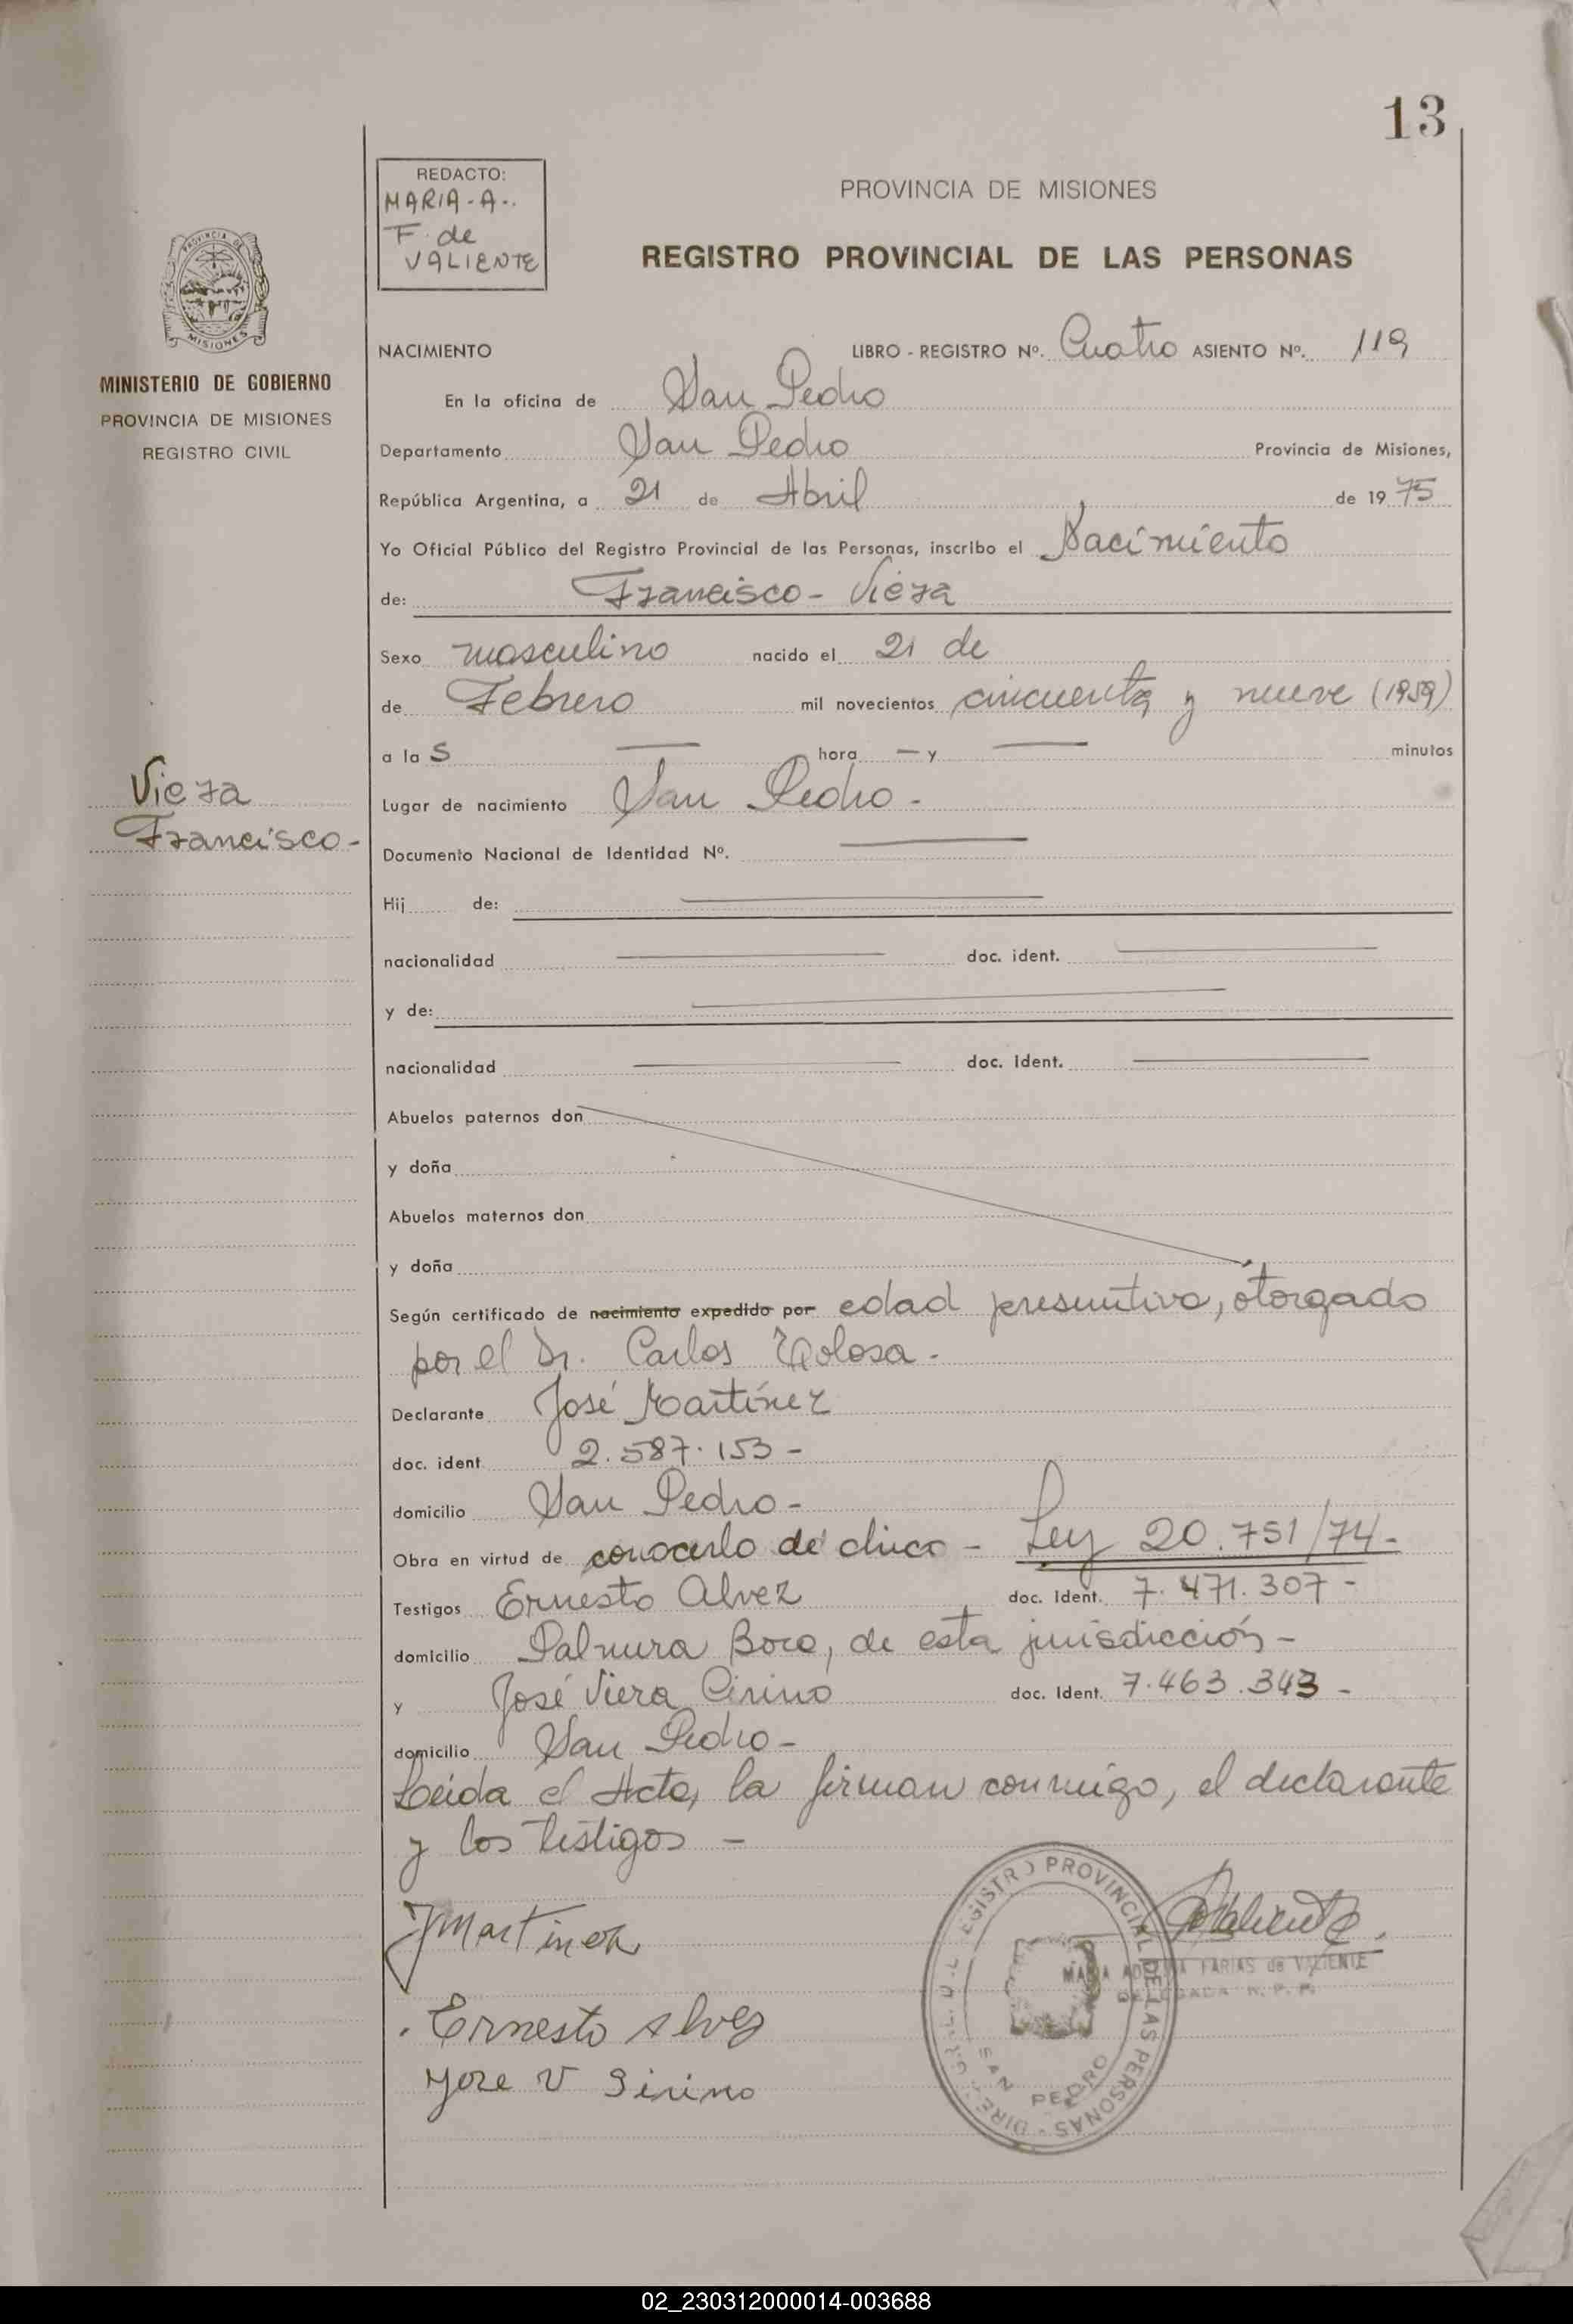 13
REDACTO:
MARIA - A -.
F. de
VALIENTE
PROVINCIA DE MISIONES
REGISTRO PROVINCIAL DE LAS PERSONAS
PROVINCIA DE
MISIONES
MINISTERIO DE GOBIERNO
PROVINCIA DE MISIONES
REGISTRO CIVIL
NACIMIENTO LIBRO - REGISTRO Nº. Cuatro ASIENTO Nº. 119
En la oficina de San Pedro
Departamento San Pedro Provincia de Misiones,
República Argentina, a 21 de Abril de 1975
Yo Oficial Público del Registro Provincial de las Personas, inscribo el Nacimiento
de: Francisco - Viera
Sexo masculino nacido el 21 de
de Febrero mil novecientos cincuenta y nueve (1959)
a la S — hora — y — minutos
Viera
Francisco -
Lugar de nacimiento San Pedro -
Documento Nacional de Identidad Nº. —
Hij de: —
nacionalidad — doc. ident. —
y de: —
nacionalidad — doc. Ident. —
Abuelos paternos don
y doña
Abuelos maternos don
y doña
Según certificado de nacimiento expedido por edad presuntiva, otorgado
por el Dr. Carlos Tolosa -
Declarante José Martínez
doc. ident 2.587.153 -
domicilio San Pedro -
Obra en virtud de conocerlo de chico - Ley 20.751/74 -
Testigos Ernesto Alvez doc. Ident. 7.471.307 -
domicilio Palmera Boca, de esta jurisdicción -
y José Viera Cirino doc. Ident. 7.463.343 -
domicilio San Pedro -
Leida el Acta, la firman conmigo, el declarante
y los testigos -
J Martinez
Ernesto Alvez
Jose V Sirino
REGISTRO PROVINCIAL DE LAS PERSONAS
SAN PEDRO
MARIA FARIAS de VALIENTE
DELEGADA R. P. P.
02_230312000014-003688